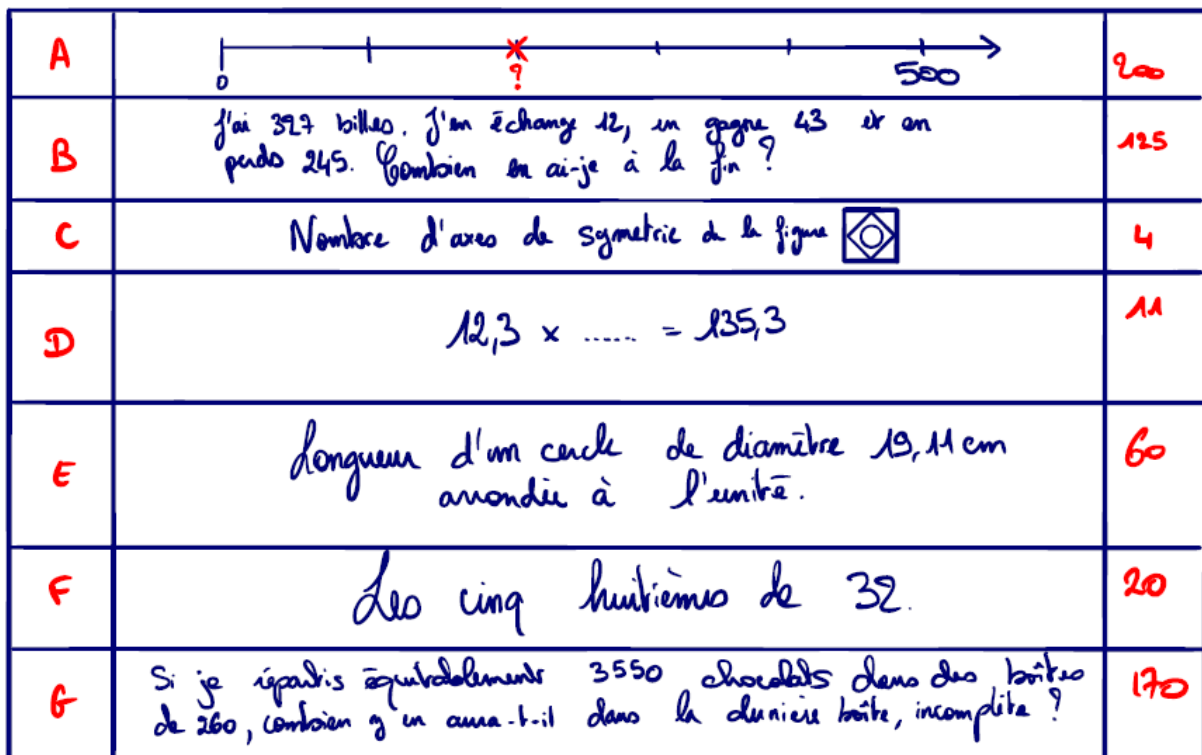 A
0 ? 500
200
B
J'ai 327 billes. J'en échange 12, en gagne 43 et en
perds 245. Combien en ai-je à la fin ?
125
C
Nombre d'axes de symetrie de la figure
4
D
12,3 × ...... = 135,3
11
E
Longueur d'un cercle de diamètre 19,11 cm
arrondie à l'unité.
60
F
Les cinq huitièmes de 32.
20
G
Si je répartis équitablements 3550 chocolats dans des boîtes
de 260, combien y en aura-t-il dans la dernière boîte, incomplète ?
170